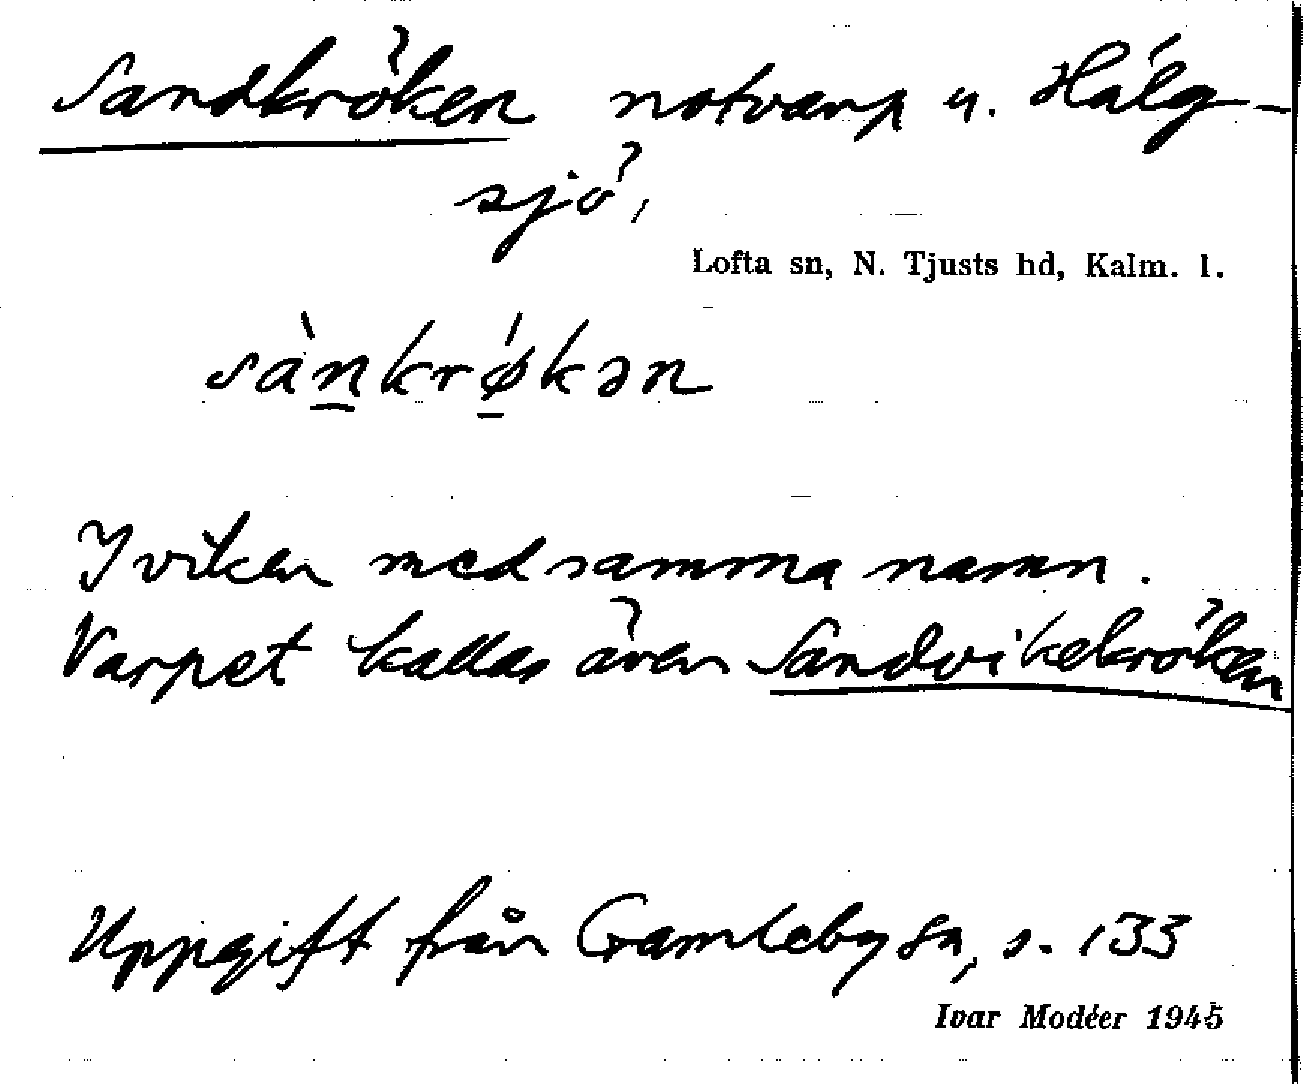 Sandkröken notvarp u. Hälg-
sjö,
Lofta sn, N. Tjusts hd, Kalm. l.
sànkrǿkən
I viken med samma namn.
Varpet kallas även Sandvikekröken
Uppgift från Gamleby sn, s. 133
Ivar Modéer 1945